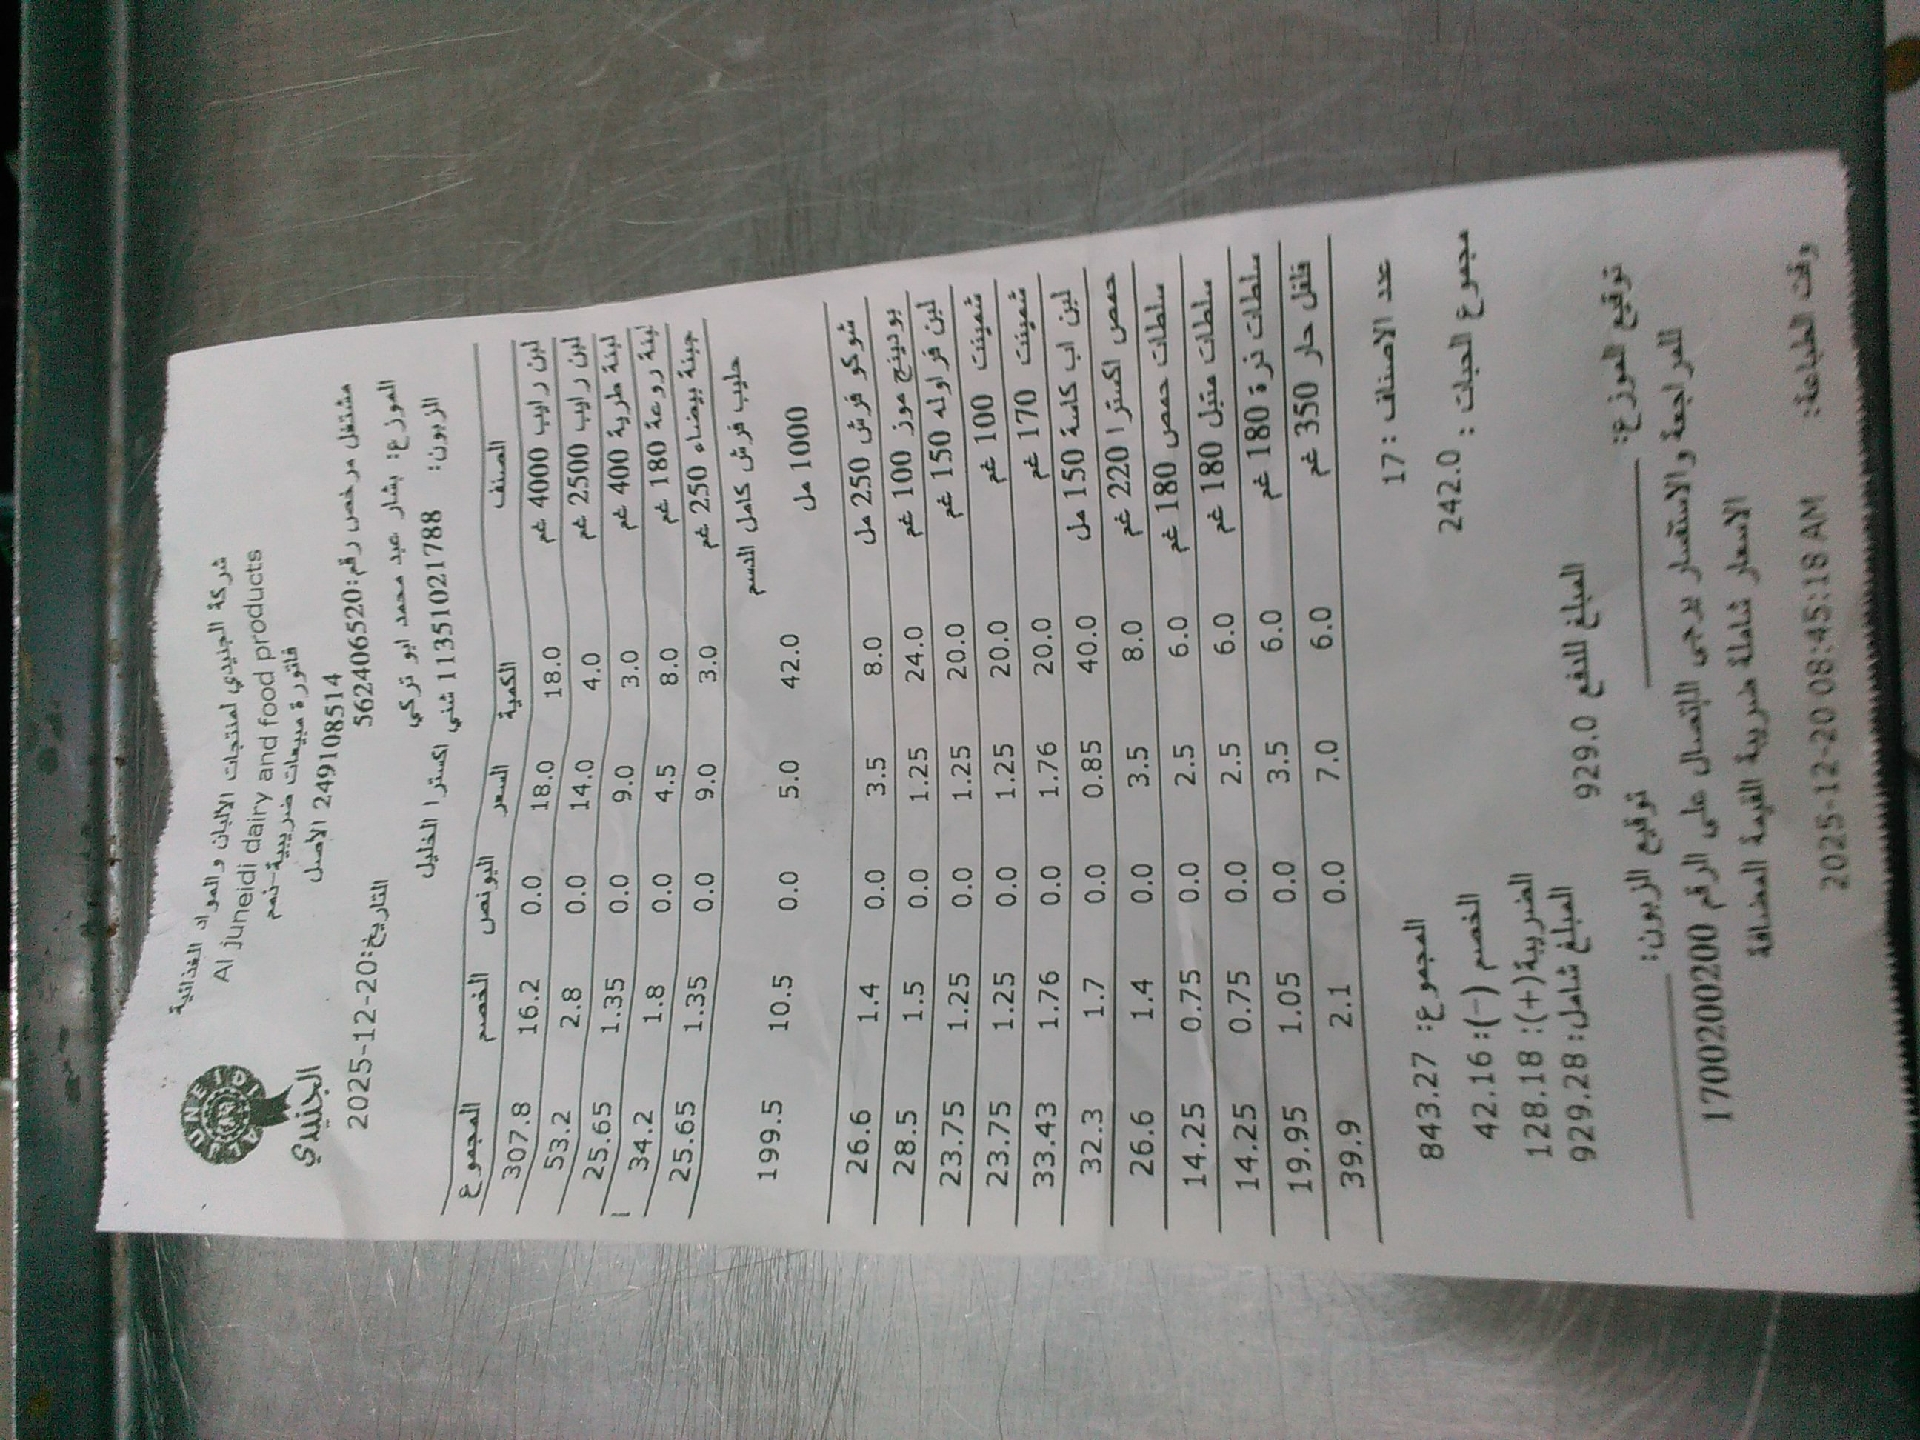 JUNEIDI
الجنيدي
شركة الجنيدي لمنتجات الالبان والمواد الغذائية
Al juneidi dairy and food products
فاتورة مبيعات ضريبية-نعم
249108514 الاصل
مشتغل مرخص رقم:562406520
التاريخ:20-12-2025
الموزع: بشار عبد محمد ابو تركي
الزبون: 11351021788 شني اكسترا الخليل
الصنف الكمية السعر البونص الخصم المجموع
لبن رايب 4000 غم 18.0 18.0 0.0 16.2 307.8
لبن رايب 2500 غم 4.0 14.0 0.0 2.8 53.2
لبنة طرية 400 غم 3.0 9.0 0.0 1.35 25.65
لبنة روعة 180 غم 8.0 4.5 0.0 1.8 34.2
جبنة بيضاء 250 غم 3.0 9.0 0.0 1.35 25.65
حليب فرش كامل الدسم
1000 مل 42.0 5.0 0.0 10.5 199.5
شوكو فرش 250 مل 8.0 3.5 0.0 1.4 26.6
بودينج موز 100 غم 24.0 1.25 0.0 1.5 28.5
لبن فراوله 150 غم 20.0 1.25 0.0 1.25 23.75
شمينت 100 غم 20.0 1.25 0.0 1.25 23.75
شمينت 170 غم 20.0 1.76 0.0 1.76 33.43
لبن اب كاسة 150 مل 40.0 0.85 0.0 1.7 32.3
حمص اكسترا 220 غم 8.0 3.5 0.0 1.4 26.6
سلطات حمص 180 غم 6.0 2.5 0.0 0.75 14.25
سلطات متبل 180 غم 6.0 2.5 0.0 0.75 14.25
سلطات ذرة 180 غم 6.0 3.5 0.0 1.05 19.95
فلفل حار 350 غم 6.0 7.0 0.0 2.1 39.9
عدد الاصناف : 17
المجموع: 843.27
مجموع الحبات : 242.0
الخصم (-): 42.16
الضريبة(+): 128.18
المبلغ شامل: 929.28
المبلغ للدفع 929.0
توقيع الموزع: توقيع الزبون:
للمراجعة والاستفسار يرجى الاتصال على الرقم 1700200200
الاسعار شاملة ضريبة القيمة المضافة
وقت الطباعة: 2025-12-20 08:45:18 AM